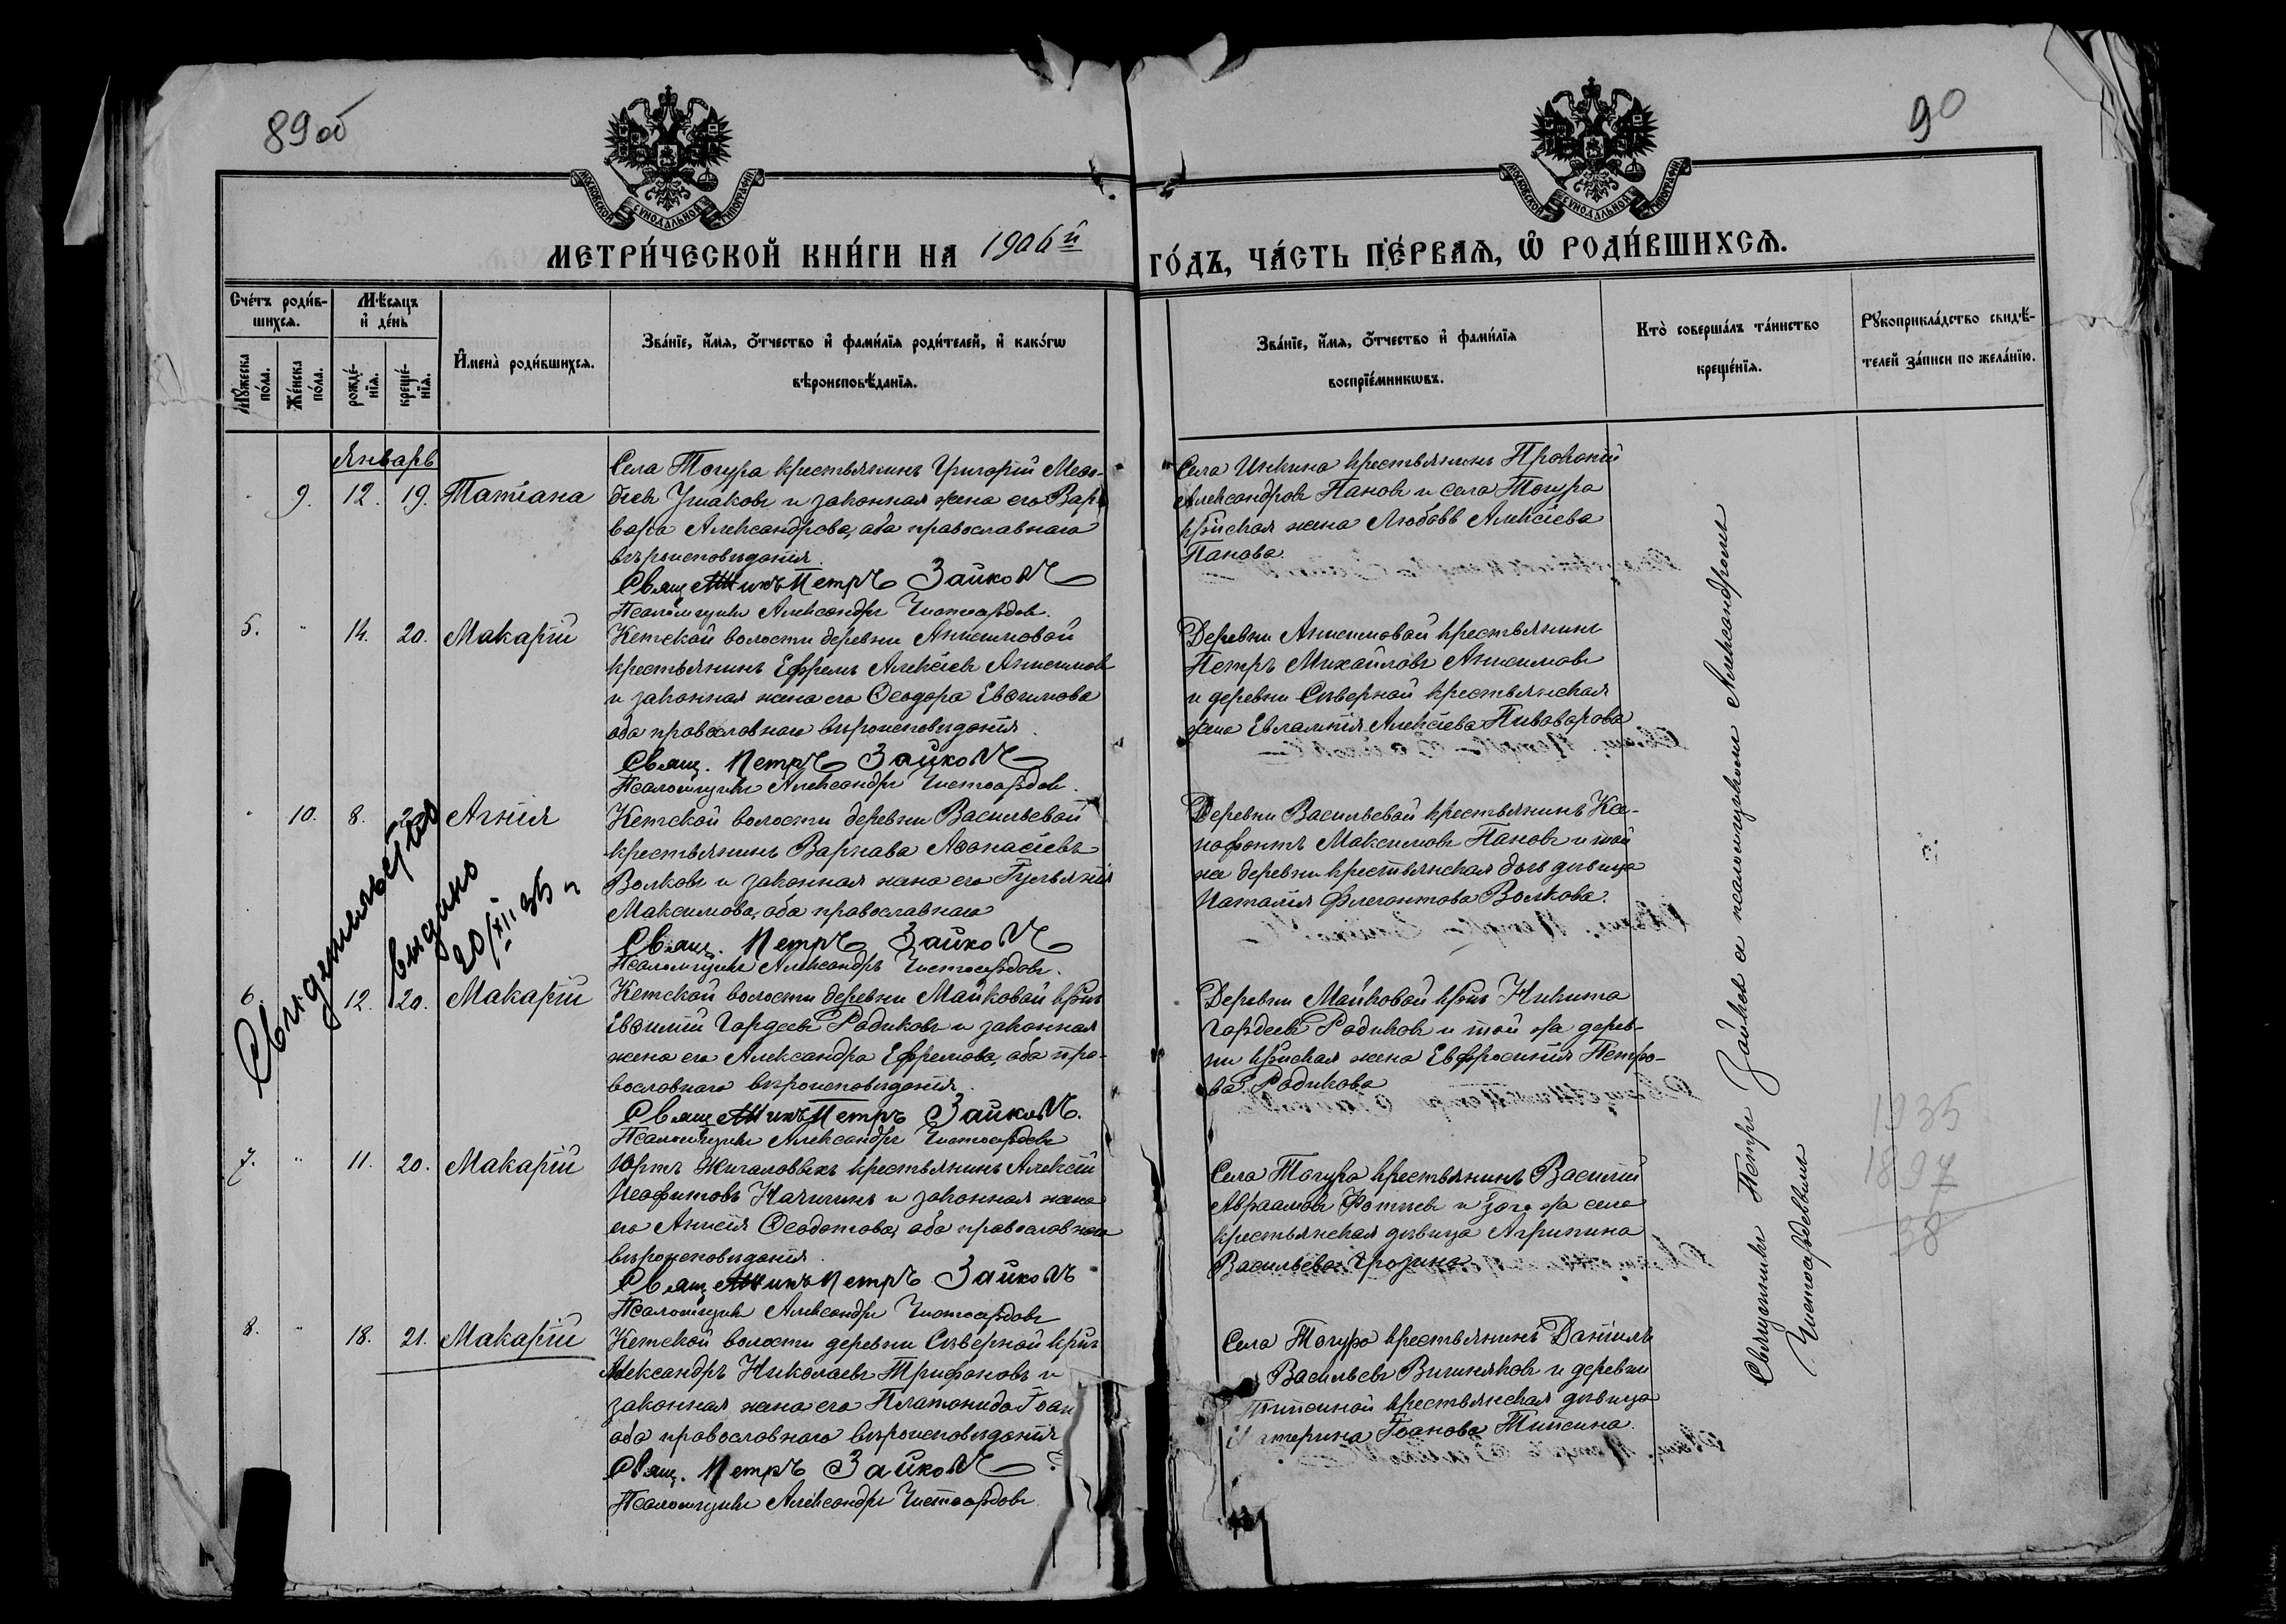 89об
90
МОСКОВСКОЙ СѴНОДАЛЬНОЙ ТИПОГРАФІИ
МОСКОВСКОЙ СѴНОДАЛЬНОЙ ТИПОГРАФІИ
МЕТРИ́ЧЕСКОЙ КНИ́ГИ НА 1906й
ГО́ДЪ, ЧА́СТЬ ПЕ́РВАѦ, Ѡ҆ РОДИ́ВШИХСѦ.
Сче́тъ роди́в-
шихсѧ.
Мꙋ́жеска по́ла.
Же́нска по́ла.
Мѣ́сѧцъ
и҆ де́нь
рожде́-
нїѧ.
креще́-
нїѧ.
И҆мена̀ роди́вшихсѧ.
Зва́нїе, и҆́мѧ, ѻ҆́тчество и҆ фами́лїѧ роди́телей, и҆ како́гѡ
вѣроисповѣ́данїѧ.
Зва́нїе, и҆́мѧ, ѻ҆́тчество и҆ фами́лїѧ
воспрїе́мникѡвъ.
Кто̀ соверша́лъ та́инство
креще́нїѧ.
Рꙋкоприкла́дство свидѣ́-
телей за́писи по жела́нїю.
Январь
9. 12. 19. Татіана
Села Тогура крестьянинъ Григорій Меѳо-
діевъ Ушаковъ и законная жена его Вар-
вара Александрова, оба православнаго
вѣроисповѣданія
Священникъ Петръ Зайковъ
Псаломщикъ Александръ Чистосердовъ.
Села Инкина крестьянинъ Прокопій
Александровъ Пановъ и села Тогура
кр̃нская жена Любовь Алексіева
Панова.
5. 14. 20. Макарій
Кетской волости деревни Анисимовой
крестьянинъ Ефремъ Алексіевъ Анисимовъ
и законная жена его Ѳеодора Евѳимова
оба православнаго вѣроисповѣданія.
Свящ. Петръ Зайковъ
Псаломщикъ Александръ Чистосердовъ.
Деревни Анисимовой крестьянинъ
Петръ Михайловъ Анисимовъ
и деревни Сѣверной крестьянская
жена Евлампія Алексіева Пивоварова
10. 8. Агнія
Кетской волости деревни Васильевой
крестьянинъ Варнава Аѳанасіевъ
Волковъ и законная жена его Іуліанія
Максимова, оба православнаго
Свящ. Петръ Зайковъ
Псаломщикъ Александръ Чистосердовъ.
Деревни Васильевой крестьянинъ Ксе-
нофонтъ Максимовъ Пановъ и той
же деревни крестьянская дочь дѣвица
Наталія Флегонтова Волкова.
Свидетельство
выдано
20/XII 35 г
6. 12. 20. Макарій
Кетской волости деревни Майковой кр̃нъ
Евѳимій Гордеевъ Родиковъ и законная
жена его Александра Ефремова, оба пра-
вославнаго вѣроисповѣданія.
Священникъ Петръ Зайковъ.
Псаломщикъ Александръ Чистосердовъ
Деревни Майковой кр̃нъ Никита
Гордеевъ Родиковъ и той же дерев-
ни кр̃нская жена Евфросинія Петро-
ва Родикова
7. 11. 20. Макарій
Юртъ Жигаловыхъ крестьянинъ Алексій
Неофитовъ Каличинъ и законная жена
его Анисія Ѳеодотова, оба православнаго
вѣроисповѣданія.
Священникъ Петръ Зайковъ
Псаломщикъ Александръ Чистосердовъ
Села Тогура крестьянинъ Василій
Авраамовъ Фатѣевъ и того же села
крестьянская дѣвица Агрипина
Васильева Грозина
8. 18. 21. Макарій
Кетской волости деревни Сѣверной кр̃нъ
Александръ Николаевъ Трифоновъ и
законная жена его Платонида Іоан
оба православнаго вѣроисповѣданія
Свящ. Петръ Зайковъ
Псаломщикъ Александръ Чистосердовъ
Села Тогура крестьянинъ Даніилъ
Васильевъ Вишняковъ и деревни
крестьянская дѣвица
Іоанова Типсина.
Священникъ Петръ Зайковъ съ псаломщикомъ Александромъ
Чистосердовымъ
1935
1897
38